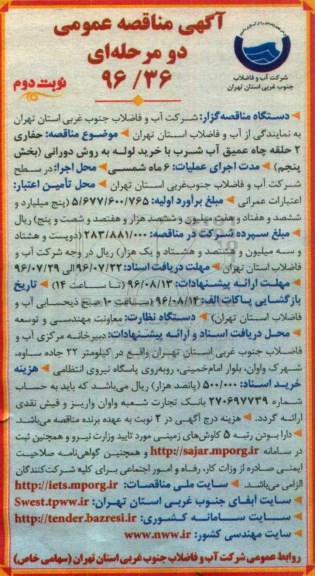 آگهی مناقصه عمومی
دو مرحله‌ای
۹۶/۳۶
نوبت دوم
شرکت آب و فاضلاب
جنوب غربی استان تهران
دستگاه مناقصه‌گزار: شرکت آب و فاضلاب جنوب غربی استان تهران
به نمایندگی از آب و فاضلاب استان تهران موضوع مناقصه: حفاری
۲ حلقه چاه عمیق آب شرب با خرید لوله به روش دورانی (بخش
پنجم) مدت اجرای عملیات: ۶ ماه شمسی محل اجرا: در سطح
شرکت آب و فاضلاب جنوب‌غربی استان تهران محل تأمین اعتبار:
اعتبارات عمرانی مبلغ برآورد اولیه: ۵/۶۷۷/۶۰۰/۷۶۵ (پنج میلیارد و
ششصد و هفتاد و هفت میلیون و ششصد هزار و هفتصد و شصت و پنج) ریال
مبلغ سپرده شرکت در مناقصه: ۲۸۳/۸۸۱/۰۰۰ (دویست و هشتاد
و سه میلیون و هشتصد و هشتاد و یک هزار) ریال در وجه شرکت آب و
فاضلاب استان تهران مهلت دریافت اسناد: ۹۶/۰۷/۲۲ الی ۹۶/۰۷/۲۹
مهلت ارائه پیشنهادات: ۹۶/۰۸/۱۳ (تا ساعت ۱۴) تاریخ
بازگشایی پاکات الف: ۹۶/۰۸/۱۴ (ساعت ۱۰ صبح ذیحسابی آب و
فاضلاب استان تهران) دستگاه نظارت: معاونت مهندسی و توسعه
محل دریافت اسناد و ارائه پیشنهادات: دبیرخانه مرکزی آب و
فاضلاب جنوب غربی استان تهران واقع در کیلومتر ۲۲ جاده ساوه،
شهرک واوان، بلوار امام‌خمینی، روبه‌روی پاسگاه نیروی انتظامی هزینه
خرید اسناد: ۵۰۰/۰۰۰ (پانصد هزار) ریال می‌باشد که باید به حساب
شماره ۲۷۰۶۹۷۷۳۹ بانک تجارت شعبه واوان واریز و فیش نقدی
ارائه گردد. هزینه درج آگهی در ۲ نوبت به عهده برنده مناقصه می‌باشد.
دارا بودن رتبه ۵ کاوش‌های زمینی مورد تایید وزارت نیرو و همچنین ثبت
در سامانه http://sajar.mporg.ir و همچنین گواهی‌نامه صلاحیت
ایمنی صادره از وزات کار، رفاه و امور اجتماعی برای کلیه شرکت‌کنندگان
الزامی می‌باشد. سایت ملی مناقصات: http://iets.mporg.ir
سایت آبفای جنوب غربی استان تهران: Swest.tpww.ir
سایت سامانه کشوری: http://tender.bazresi.ir
سایت مهندسی کشور: www.nww.ir
روابط عمومی شرکت آب و فاضلاب جنوب غربی استان تهران (سهامی خاص)